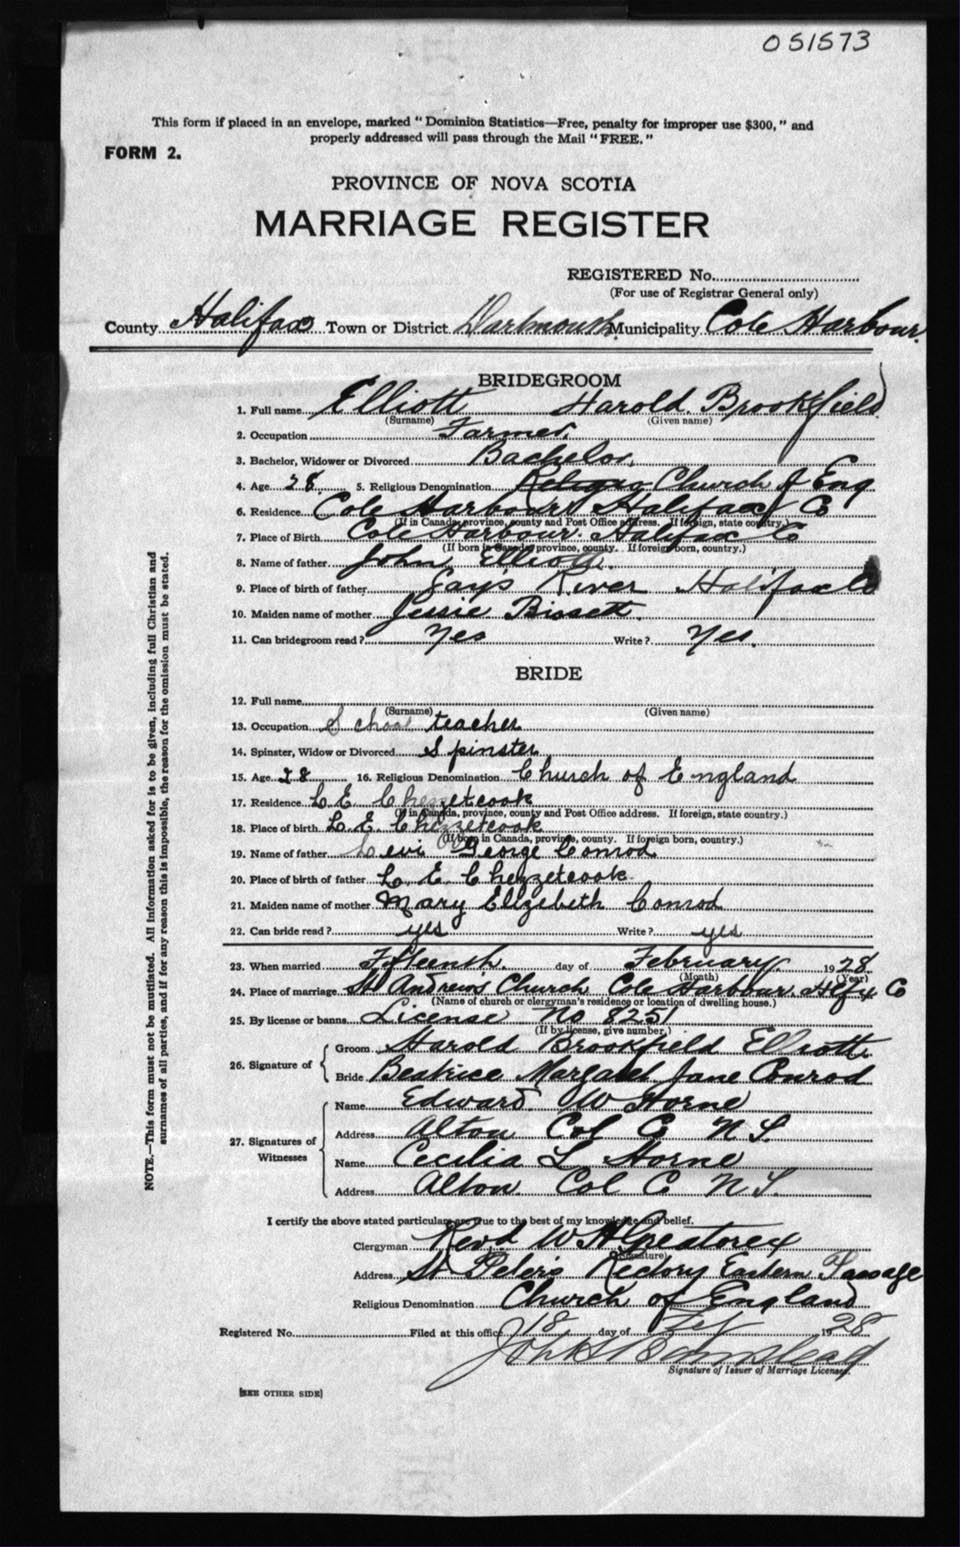 051573
This form if placed in an envelope, marked "Dominion Statistics—Free, penalty for improper use $300," and
properly addressed will pass through the Mail "FREE."
FORM 2.
PROVINCE OF NOVA SCOTIA
MARRIAGE REGISTER
REGISTERED No.
(For use of Registrar General only)
County Halifax Town or District Dartmouth Municipality Cole Harbour.
BRIDEGROOM
1. Full name Elliott Harold Brookfield
(Surname) (Given name)
2. Occupation Farmer.
3. Bachelor, Widower or Divorced Bachelor.
4. Age 28 5. Religious Denomination Church of Eng
6. Residence Cole Harbour Halifax C
(If in Canada, province, county and Post Office address. If foreign, state country.)
7. Place of Birth Cole Harbour. Halifax Co
(If born in Canada, province, county. If foreign born, country.)
8. Name of father John Elliott.
9. Place of birth of father Gays River Halifax Co
10. Maiden name of mother Jessie Bissett.
11. Can bridegroom read? Yes Write? Yes.
BRIDE
12. Full name
(Surname) (Given name)
13. Occupation School teacher
14. Spinster, Widow or Divorced Spinster
15. Age 28 16. Religious Denomination Church of England
17. Residence L E Chezzetcook
(If in Canada, province, county and Post Office address. If foreign, state country.)
18. Place of birth L E Chezzetcook
(If born in Canada, province, county. If foreign born, country.)
19. Name of father Levi George Conrod
20. Place of birth of father L. E Chezzetcook
21. Maiden name of mother Mary Elizebeth Conrod
22. Can bride read? yes Write? yes
23. When married Fifteenth. day of February. 1928
(Month) (Year)
24. Place of marriage St Andrew's Church Cole Harbour. Hfx C
(Name of church or clergyman's residence or location of dwelling house.)
25. By license or banns License No 8251
(If by license, give number.)
26. Signature of
Groom Harold Brookfield Elliott
Bride Beatrice Margaret Jane Conrod
27. Signatures of Witnesses
Name Edward W Horne
Address Alton Col C N S.
Name Cecilia L Horne
Address Alton. Col C N S.
I certify the above stated particulars are true to the best of my knowledge and belief.
Clergyman Revd W H Greatorex
(Signature)
Address St Peter's Rectory Eastern Passage
Religious Denomination Church of England
Registered No. Filed at this office 18 day of Feb 1928
Signature of Issuer of Marriage Licenses.
[SEE OTHER SIDE]
NOTE.—This form must not be mutilated. All information asked for is to be given, including full Christian and
surnames of all parties, and if for any reason this is impossible, the reason for the omission must be stated.